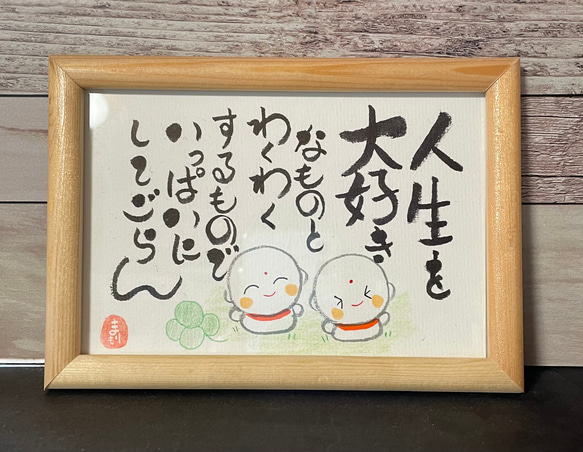 人生を
大好き
なものと
わくわく
するもので
いっぱいに
してごらん